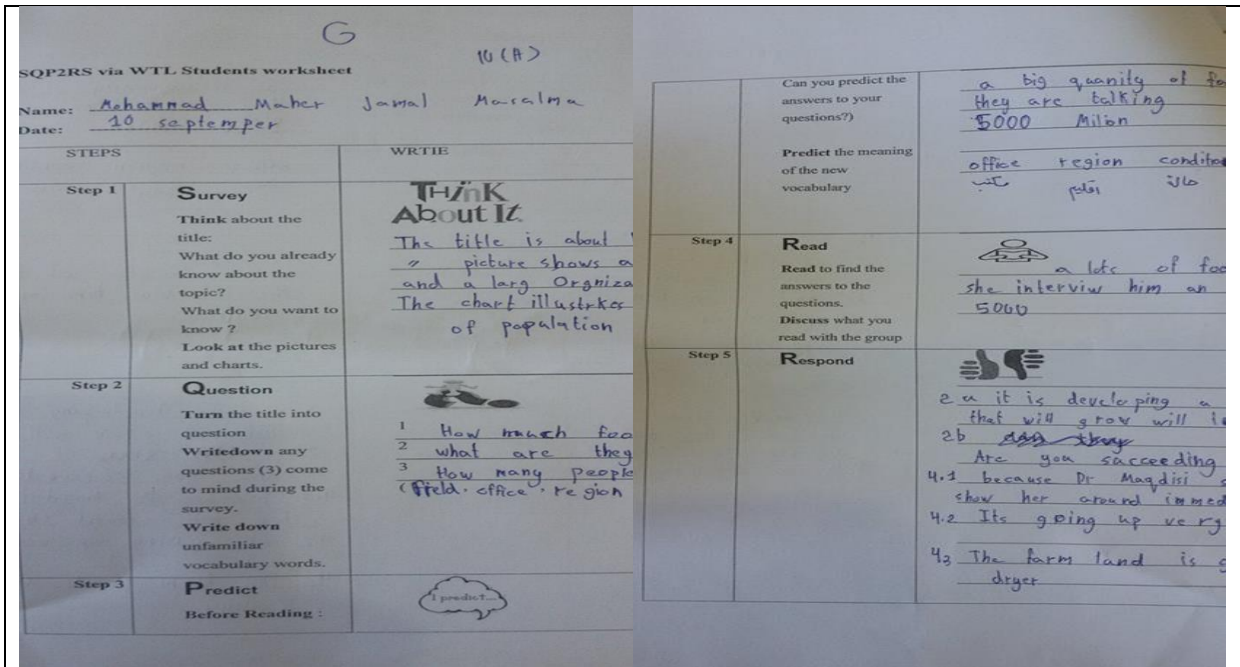 G
10 (A)
SQP2RS via WTL Students worksheet
Name: Mohammad Maher Jamal Masalma
Date: 10 septemper
STEPS
WRTIE
Step 1
Survey
Think about the
title:
What do you already
know about the
topic?
What do you want to
know ?
Look at the pictures
and charts.
THiNK
About It
The title is about
〃 picture shows a
and a larg Orgniza
The chart illustrkes
of population
Step 2
Question
Turn the title into
question
Writedown any
questions (3) come
to mind during the
survey.
Write down
unfamiliar
vocabulary words.
1 How much foo
2 what are they
3 How many people
(field. office. region
Step 3
Predict
Before Reading :
I predict....
Can you predict the
answers to your
questions?)
Predict the meaning
of the new
vocabulary
a big quanity of fo
they are talking
5000 Milion
office region conditio
مكتب اقليم حالة
Step 4
Read
Read to find the
answers to the
questions.
Discuss what you
read with the group
a lots of foo
she interviw him an
5000
Step 5
Respond
2 a it is developing a
that will grow will
2b
Are you succeeding
4.1 because Dr Maqdisi
show her around immed
4.2 Its going up verg
43 The farm land is g
dryer